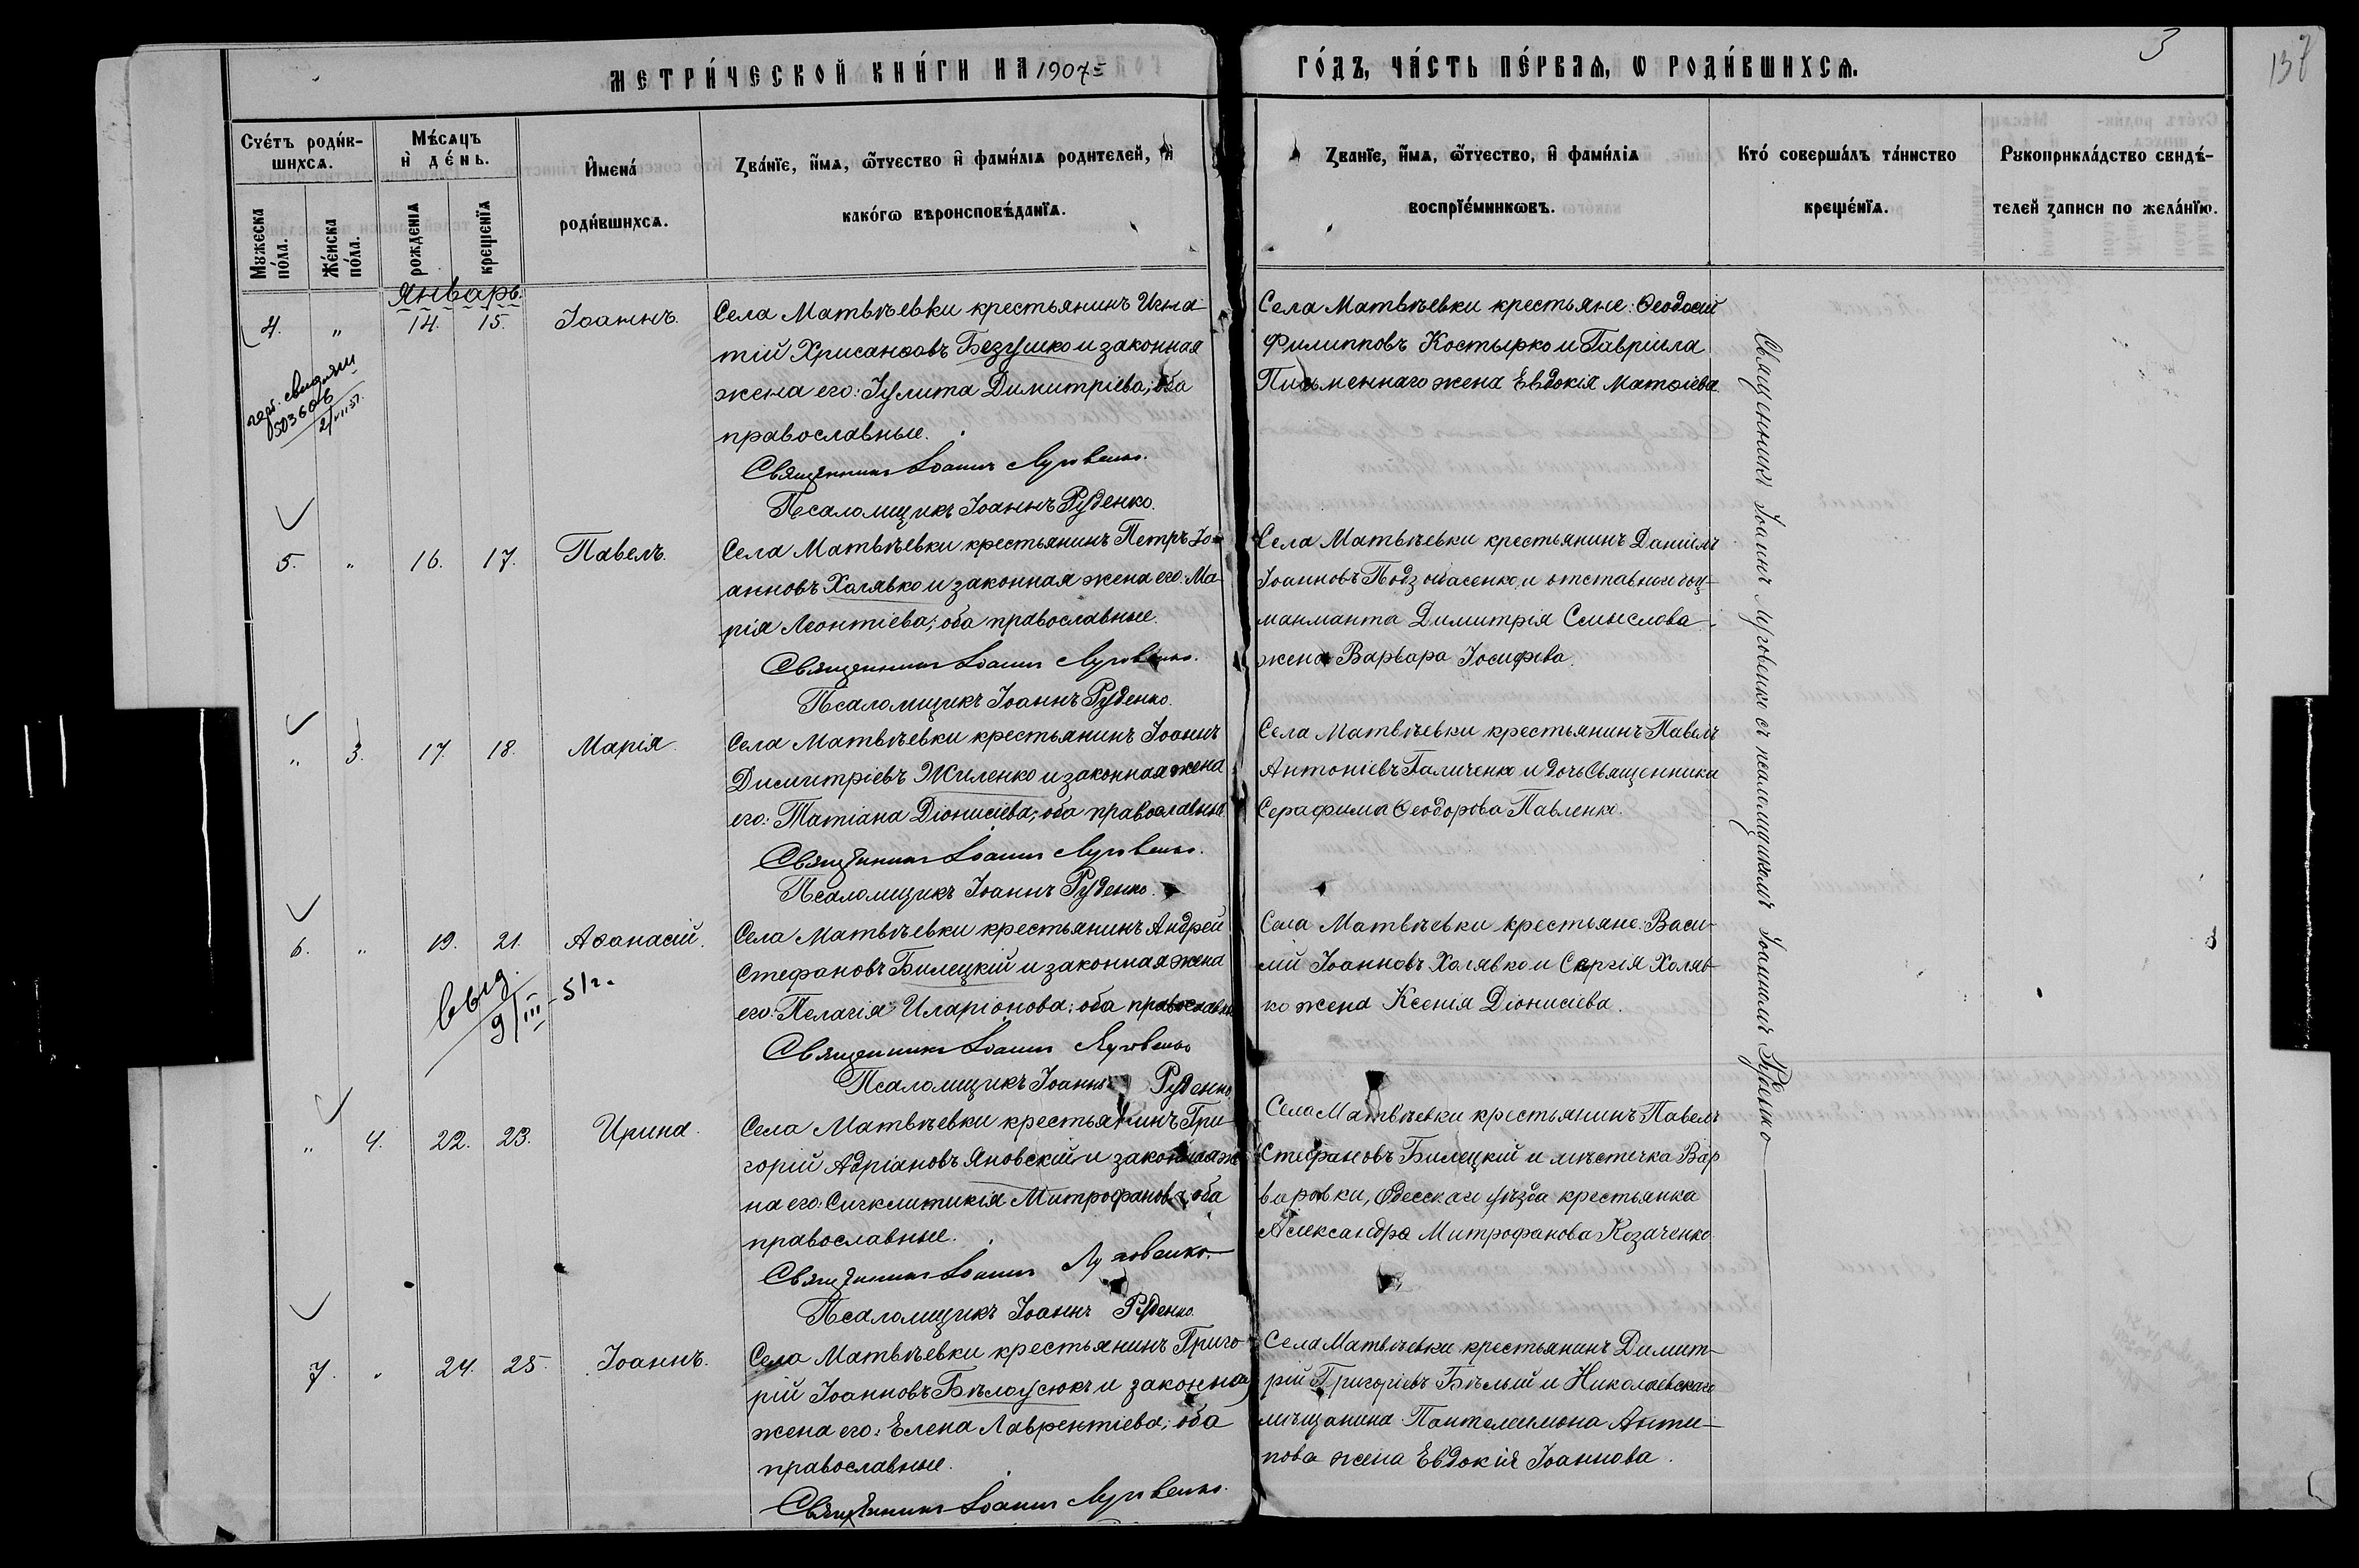 МЕТРИ́ЧЕСКОЙ КНИ́ГИ НА 1907 ГО́ДЪ, ЧА́СТЬ ПЕ́РВАѦ, Ѡ РОДИ́ВШИХСѦ.
3
137
Сче́тъ роди́в-
шихсѧ.
Мꙋжеска
по́ла.
Же́нска
по́ла.
Мѣ́сѧцъ
и҆ де́нь.
рожденїѧ
крещенїѧ
И҆мена́
роди́вшихсѧ.
Зва́нїе, и҆́мѧ, ѻ҆́тчество и҆ фами́лїѧ родителей, и҆
како́гѡ вѣроисповѣ́данїѧ.
Званїе, и҆́мѧ, ѻ҆́тчество, и҆ фами́лїѧ
воспрїе́мникѡвъ.
Кто́ соверша́лъ та́инство
креще́нїѧ.
Рꙋкоприкла́дство свидѣ́-
телей записи по жела́нїю.
Январь.
4. " 14. 15. Іоаннъ.
Села Матвѣевки крестьянинъ Игна-
тій Хрисанѳовъ Безушко и законная
жена его: Іулита Димитріева; оба
православные.
Священникъ Іоаннъ Луговенко.
Псаломщикъ Іоаннъ Руденко.
Села Матвѣевки крестьяне: Ѳеодосій
Филипповъ Костырко и Гавріила
Письменнаго жена Евдокія Матѳіева.
2/VII-57.
5. " 16. 17. Павелъ.
Села Матвѣевки крестьянинъ Петръ Іо-
анновъ Халявко и законная жена его: Ма-
рія Леонтіева; оба православные.
Священникъ Іоаннъ Луговенко.
Псаломщикъ Іоаннъ Руденко.
Села Матвѣевки крестьянинъ Даніилъ
Іоанновъ и отставного
Димитрія Смыслова
жена Варвара Іосифова.
" 3. 17. 18. Марія.
Села Матвѣевки крестьянинъ Іоаннъ
Димитріевъ Жиленко и законная жена
его: Татіана Діонисіева; оба православные.
Священникъ Іоаннъ Луговенко.
Псаломщикъ Іоаннъ Руденко.
Села Матвѣевки крестьянинъ Павелъ
Антоніевъ Галиченко и дочь Священника
Серафима Ѳеодорова Павленко.
6. " 19. 21. Аѳанасій.
Села Матвѣевки крестьянинъ Андрей
Стефановъ Билецкій и законная жена
его: Пелагія Иларіонова; оба православн.
Священникъ Іоаннъ Луговенко
Псаломщикъ Іоаннъ Руденко
Села Матвѣевки крестьяне: Васи-
лій Іоанновъ Халявко и Сергія Халяв-
ко жена Ксенія Діонисіева.
выд.
9/III-51г.
" 4. 22. 23. Ирина.
Села Матвѣевки крестьянинъ Гри-
горій Адріановъ Яновскій и законная же-
на его: Сигклитикія Митрофанова; оба
православные.
Священникъ Іоаннъ Луговенко.
Псаломщикъ Іоаннъ Руденко
Села Матвѣевки крестьянинъ Павелъ
Стефановъ Билецкій и мѣстечка Вар-
варовки, Одесскаго уѣзда крестьянка
Александра Митрофанова Козаченко
7. " 24. 25. Іоаннъ.
Села Матвѣевки крестьянинъ Григо-
рій Іоанновъ Бѣлоусюкъ и законная
жена его: Елена Лаврентіева; оба
православные.
Священникъ Іоаннъ Луговенко.
Села Матвѣевки крестьянинъ Димит-
рій Григоріевъ Бѣлый и Николаевскаго
мѣщанина Пантелеимона Анти-
пова жена Евдокія Іоаннова.
Священникъ Іоаннъ Луговенко съ псаломщикомъ Іоанномъ Руденко